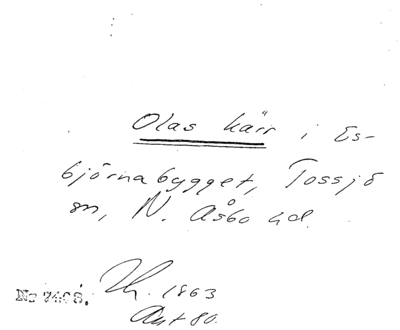 Olas kärr i Es-
björnabygget, Tossjö
sn, N. Åsbo hd.
No 7408. Th. 1863
Ant 80.